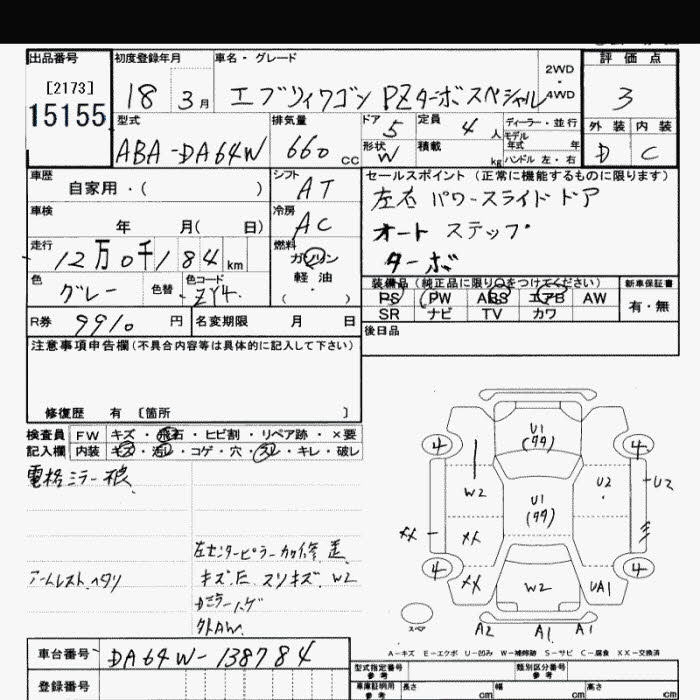 出品番号 初度登録年月 車名・グレード 2WD・4WD 評価点
[2173] 15155 18 3月 エブリィワゴン PZターボスペシャル 3
型式 排気量 ドア 5 定員 4 人 ディーラー・並行 外装 内装
ABA-DA64W 660 cc 形状 W 積載 kg モデル年式 年 ハンドル 左・右 D C
車歴 シフト セールスポイント (正常に機能するものに限ります)
自家用・( ) AT 左右 パワースライドドア
車検 冷房 オート ステップ
年 月( 日) AC ターボ
走行 燃料
12万0千184 km ガソリン 軽油 ( )
色 色替 色コード 装備品 (純正品に限り○をつけてください) 新車保証書
グレー ZY4 PS PW ABS エアB AW 有・無
R券 9910 円 名変期限 月 日 SR ナビ TV カワ
注意事項申告欄 (不具合内容等は具体的に記入して下さい) 後日品
修復歴 有 〔箇所 〕
検査員 FW キズ・飛石・ヒビ割・リペア跡・×要
記入欄 内装 キズ・汚レ・コゲ・穴・スレ・キレ・破レ
電格ミラー不良
左センターピラー
アームレスト ヘタリ キズ スリキズ W2
ミラーハゲ
外AW
U1
(タタ)
4 4
W2 U1 (タタ) U2 U2
XX XX
4 XX W2 UA1 4
スペア A2 A1 A1
A-キズ E-エクボ U-凹み W-補修跡 S-サビ C-腐食 XX-交換済
車台番号 DA64W-138784
型式指定番号 参考 類別区分番号 参考
登録番号 車庫証明用 参考 長さ cm 幅 cm 高さ cm